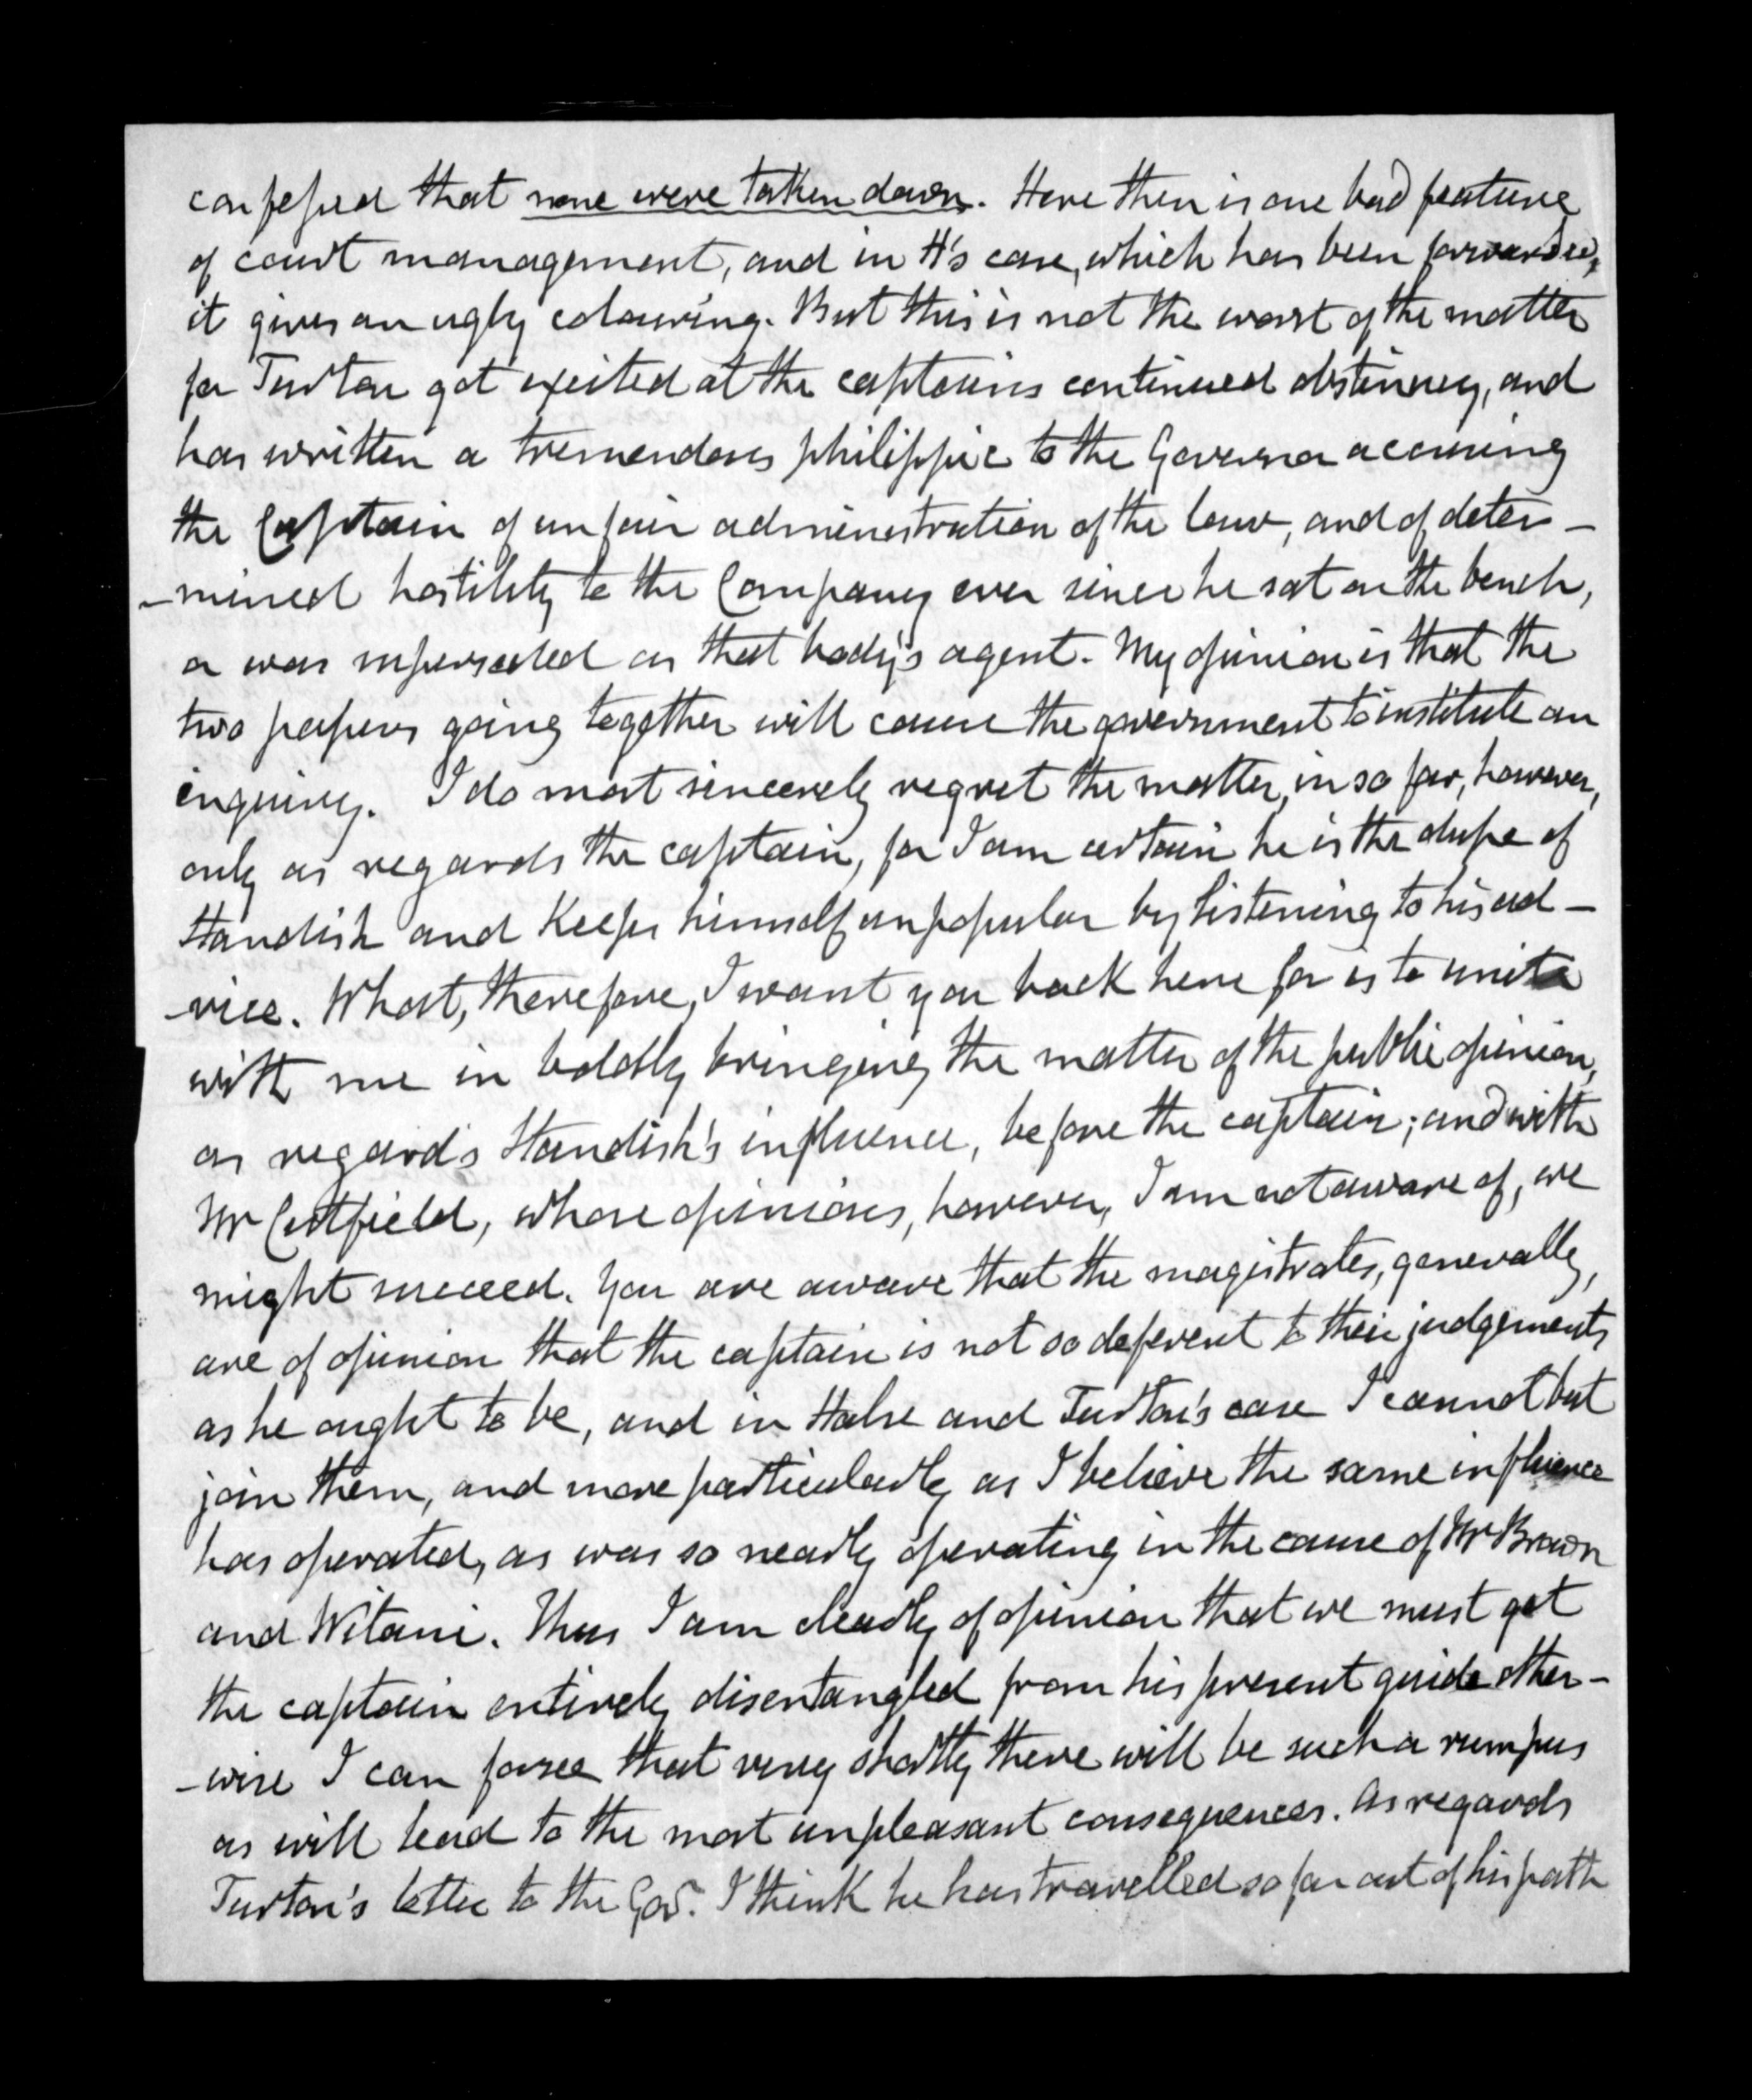 confessed that none were taken down. Here then is one bad feature
of court management, and in H's case, which has been forwarded,
it gives an ugly colouring. But this is not the worst of the matter
for Turton got exited at the captains continued obstinacy, and
has written a tremendous philippic to the Governor accusing
the Captain of unfair administration of the law, and of deter-
-mined hostility to the Company ever since he sat on the bench,
or was superseded as that body's agent. My opinion is that the
two papers going together will cause the government to institute an
inquiry. I do most sincerely regret the matter, in so far, however,
only as regards the captain, for I am certain he is the dupe of
Standish and keeps himself unpopular by listening to his ad-
-vice. What, therefore, I want you back here for is to unite
with me in boldly bringing the matter of the public opinion,
as regards Standish's influence, before the captain; and with
Mr Cutfield, whose opinions, however, I am not aware of, we
might succeed. You are aware that the magistrates, generally,
are of opinion that the captain is not so deferent to their judgements
as he ought to be, and in Halse and Turton's case I cannot but
join them, and more particularly as I believe the same influence
has operated, as was so nearly operating in the cause of Mr Brown
and Witani. Thus I am clearly of opinion that we must get
the captain entirely disentangled from his present guide other-
-wise I can forsee that very shortly there will be such a rumpus
as will lead to the most unpleasant consequences. As regards
Turton's letter to the Gov. I think he has travelled so far out of his path